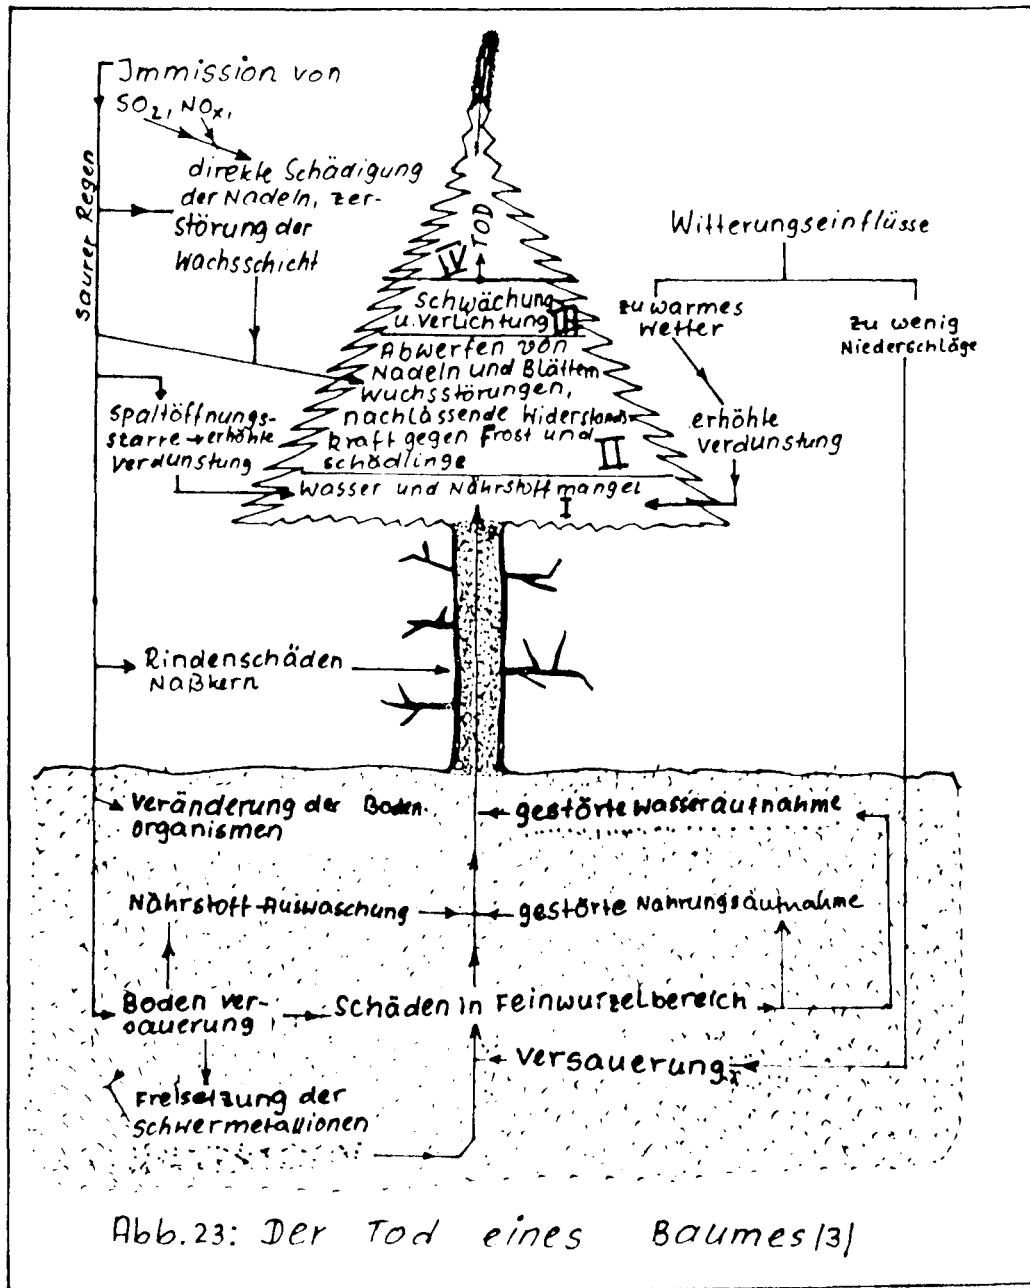 Immission von
SO2, NOx,
saurer Regen
direkte Schädigung
der Nadeln, zer-
störung der
Wachsschicht
Spaltöffnungs-
starre → erhöhte
Verdunstung
IV
TOD
Schwächung
u. Verlichtung III
Abwerfen von
Nadeln und Blättern
Wuchsstörungen,
nachlassende Widerstands-
kraft gegen Frost und
schädlinge II
Wasser und Nährstoffmangel
I
Witterungseinflüsse
zu warmes
Wetter
zu wenig
Niederschläge
erhöhte
Verdunstung
Rindenschäden
Naßkern
Veränderung der Boden-
organismen
gestörte Wasseraufnahme
Nährstoff-Auswaschung
gestörte Nahrungsaufnahme
Boden ver-
sauerung
Schäden in Feinwurzelbereich
Versauerung
Freisetzung der
Schwermetallionen
Abb.23: Der Tod eines Baumes/3/